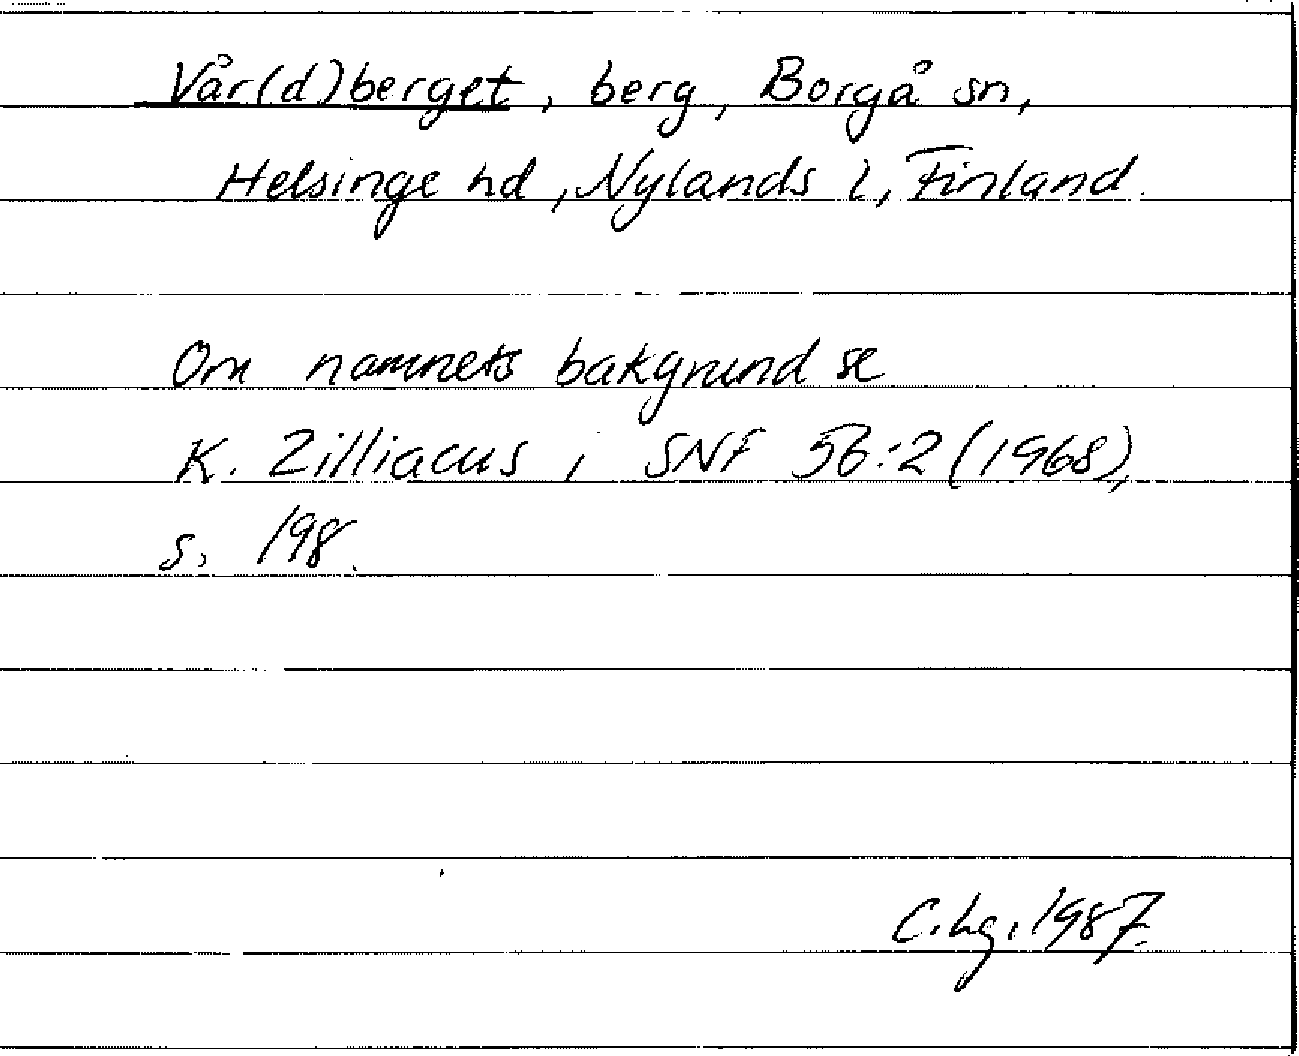 Vår(d)berget, berg, Borgå sn,
Helsinge hd, Nylands l, Finland.
Om namnets bakgrund se
K. Zilliacus i SNF 56:2 (1968),
s. 198.
C.hg. 1987.